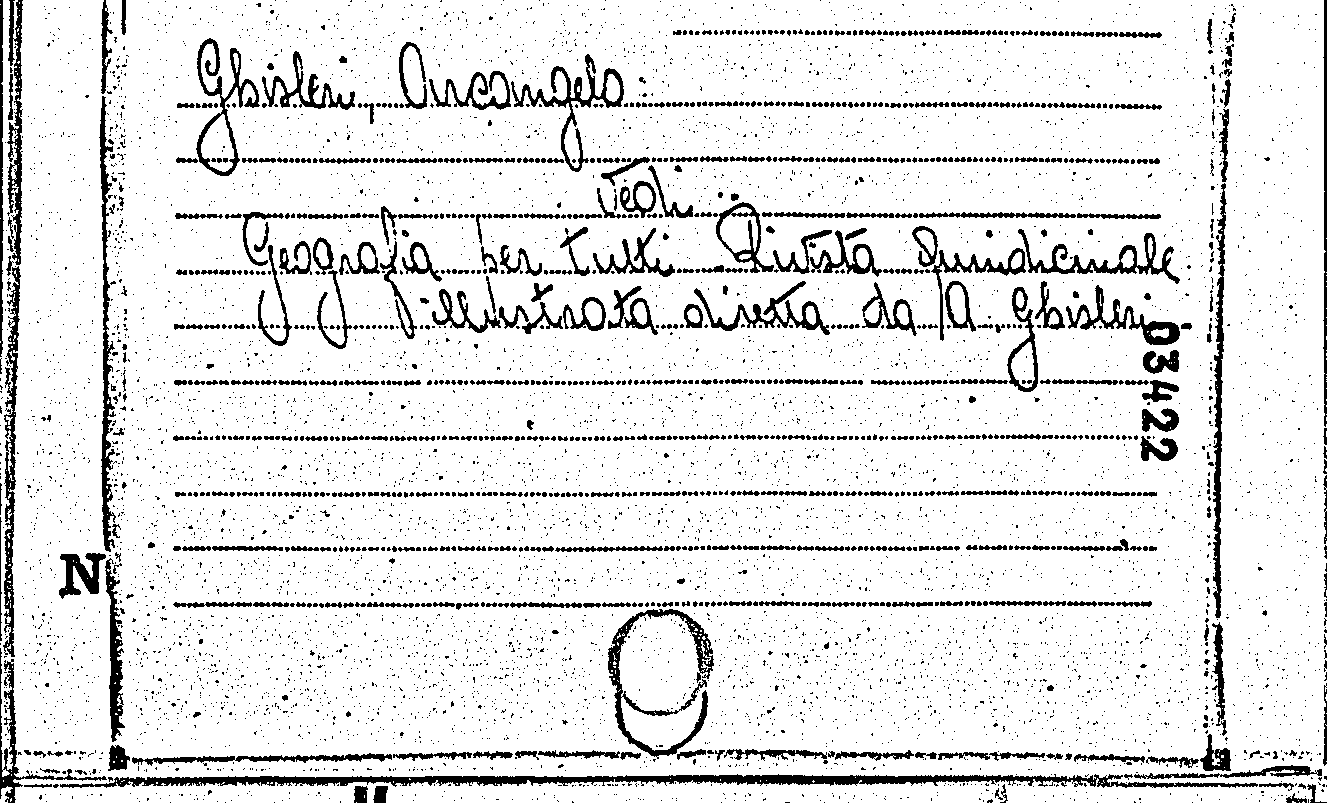 Ghisleri, Arcangelo.
Vedi:
Geografia per tutti Rivista Quindicinale
illustrata diretta da A. Ghisleri.
03422
N